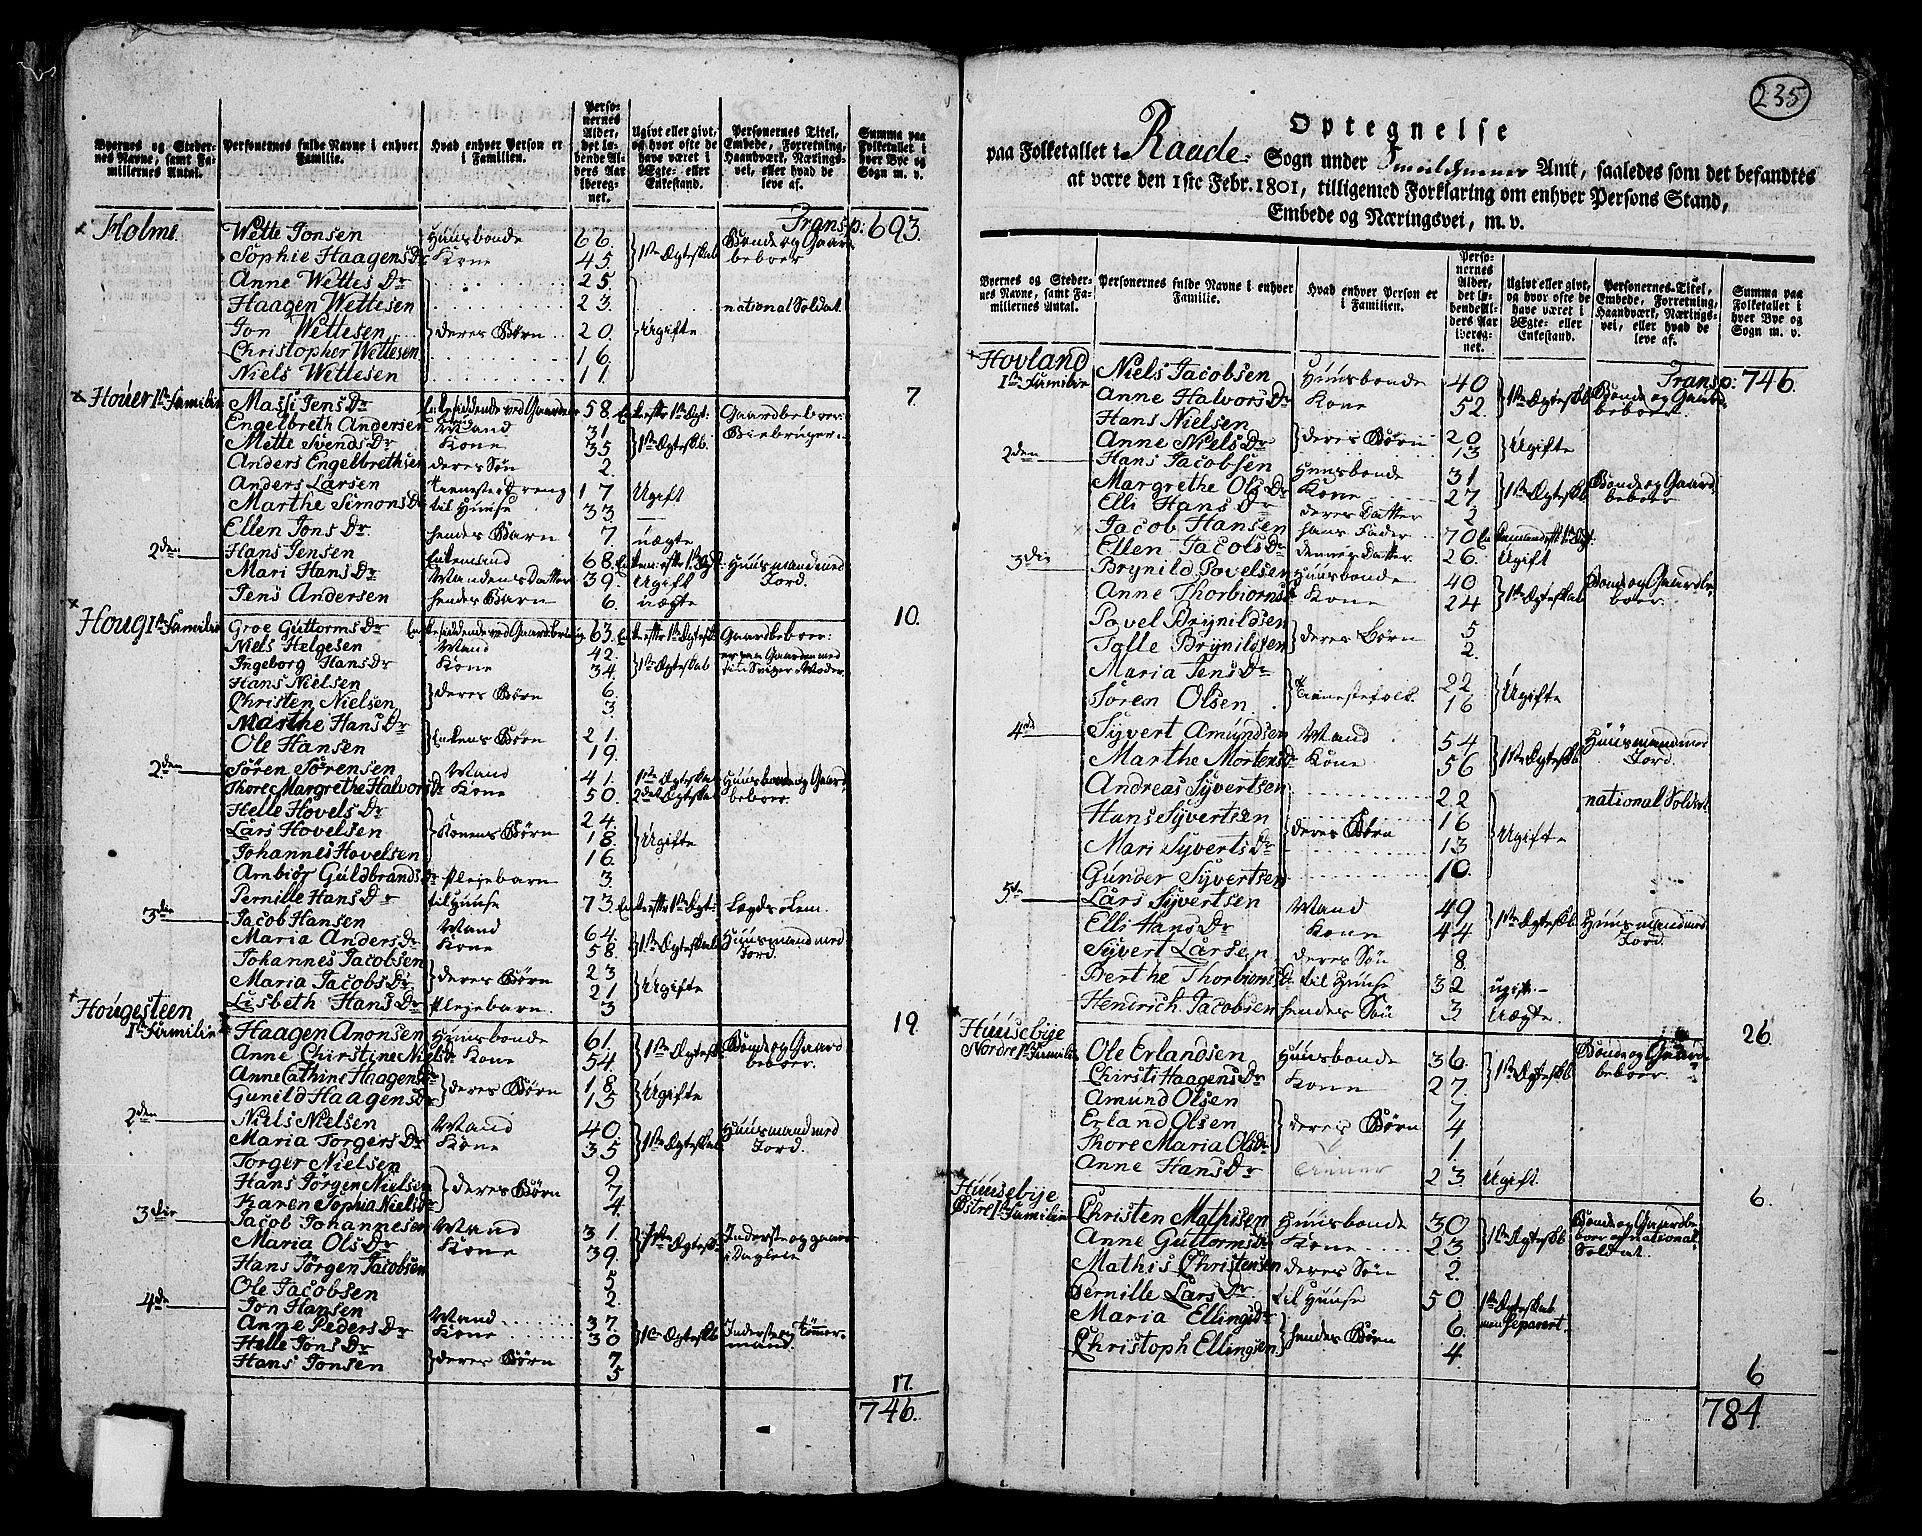 Byernes og Stedernes Navne, samt Familiernes Antal. | Personernes fulde Navne i enhver Familie. | Hvad enhver Person er i Familien. | Personernes Alder, det løbende Alders Aar iberegnet. | Ugivt eller givt, og hvor ofte de have været i Ægte- eller Enkestand. | Personernes Titel, Embede, Forretning, Haandværk, Næringsvei, eller hvad de leve af. | Summa paa Folketallet i hver Bye og Sogn m. v.
Transp: 693.
Holme. Wette Jonsen Huusbonde 66. 1ste Ægteskab Bonde og Gaardbeboer
Sophie Haagens Dr Kone 45
Anne Wettes Dr 25.
Haagen Wettesen 23. national Soldat.
Jon Wettesen deres Børn 20. Ugifte
Christopher Wettesen 16.
Niels Wettesen 11.
7
Houer 1ste Familie Massi Jens Dr 58. Gaardbeboer:
Engelbreth Andersen Mand 31 1ste Ægteskb.
Mette Svends Dr Kone 35
Anders Engelbrethsen deres Søn 2
Anders Larsen tieneste Dreng 17 Ugift
Marthe Simons Dr til Huuse 33
Ellen Jons Dr hendes Barn 7. uægte
2den Hans Jensen Enkemand 68. Huusmand med Jord.
Mari Hans Dr Mandens Datter 39. Ugift
Jens Andersen hendes Barn 6. uægte
10.
Houg 1ste Familie Groe Guttorms Dr 63. Gaardbeboer:
Niels Helgesen Mand 42. 1ste Ægteskab er paa Gaarden med sin Sviger Moder
Ingeborg Hans Dr Kone 34
Hans Nielsen deres Børn 6.
Christen Nielsen 3.
Marthe Hans Dr Enkens Børn 21.
Ole Hansen 19.
2den Sören Sörensen Mand 41. 1ste Ægteskab Huusbonde og Gaardbeboer.
Thore Margrethe Halvors Dr Kone 50. 2det Ægteskab
Helle Hovels Dr 24.
Lars Hovelsen Konens Børn 18. Ugifte
Johannes Hovelsen 16.
Ambiör Guldbrands Dr Pleiebarn 3.
Pernille Hans Dr til Huuse 73. Lægds Lem.
3die Jacob Hansen Mand 64. 1ste Ægteskab Huusmand med Jord.
Maria Anders Dr Kone 58.
Johannes Jacobsen deres Børn 23 Ugifte
Maria Jacobs Dr 21
Lisbeth Hans Dr Pleiebarn. 3
19.
Hougesteen 1ste Familie Haagen Anonsen Huusbonde 61. 1ste Ægteskb. Bonde og Gaardbeboer.
Anne Chirstine Niels Dr Kone 54.
Anne Cathine Haagens Dr deres Børn 18. Ugifte
Gunild Haagens Dr 15
2den Niels Nielsen Mand 40 1ste Ægteskab Huusmand med Jord.
Maria Torgers Dr Kone 35
Torger Nielsen 9
Hans Jörgen Nielsen deres Børn 7
Karen Sophia Niels Dr 4.
3die Jacob Johannesen Mand 31. 1ste Ægteskb. Inderste og gaar i Dagleie
Maria Ols Dr Kone 39.
Hans Jörgen Jacobsen 5
Ole Jacobsen 2.
4de Jon Hansen Mand 37. 1ste Ægteskb Inderste og Tømmermand.
Anne Peders Dr Kone 30
Helle Jons Dr deres Børn 7
Hans Jonsen 5
17.
746.
235
Optegnelse
paa Folketallet i Raade Sogn under Smaalehnenes Amt, saaledes som det befandtes
at være den 1ste Febr. 1801, tilligemed Forklaring om enhver Persons Stand,
Embede og Næringsvei, m. v.
Byernes og Stedernes Navne, samt Familiernes Antal. | Personernes fulde Navne i enhver Familie. | Hvad enhver Person er i Familien. | Personernes Alder, det løbende Alders Aar iberegnet. | Ugivt eller givt, og hvor ofte de have været i Ægte- eller Enkestand. | Personernes Titel, Embede, Forretning, Haandværk, Næringsvei, eller hvad de leve af. | Summa paa Folketallet i hver Bye og Sogn m. v.
Transp: 746.
Hovland 1ste Familie Niels Jacobsen Huusbonde 40 1ste Ægteskb Bonde og Gaardbeboer.
Anne Halvors Dr Kone 52.
Hans Nielsen deres Børn 20 Ugifte
Anne Niels Dr 13
2den Hans Jacobsen Huusbonde 31 1ste Ægteskb Bonde og Gaardbeboer
Margrethe Ols Dr Kone 27
Elli Hans Dr deres Datter 2
Jacob Hansen hans Fader 70
Ellen Jacobs Dr dennes Datter 26. Ugift
3die Brynild Povelsen Huusbonde 40 1ste Ægteskab Bonde og Gaardbeboer.
Anne Thorbiorns Dr Kone 24
Povel Brynildsen deres Børn 5
Talle Brynildsen 2.
Maria Jens Dr Tienestefolk. 22 Ugifte
Sören Olsen 16
4de Syvert Amundsen Mand 54 1ste Ægteskb Huusmand med Jord.
Marthe Mortens Dr Kone 56
Andreas Syvertsen 22 national Soldat
Hans Syvertsen deres Børn 16 Ugifte
Mari Syverts Dr 13
Gunder Syvertsen 10.
5te Lars Syvertsen Mand 49 1ste Ægteskb Huusmand med Jord.
Elli Hans Dr Kone 44
Syvert Larsen deres Søn 8.
Berthe Thorbiorns Dr til Huuse 32 ugift
Hendrich Jacobsen hendes Søn 3 Uægte.
26.
Huusebye Nordre 1ste Familie Ole Erlandsen Huusbonde 36. 1ste Ægteskb Bonde og Gaardbeboer.
Chirsti Haagens Dr Kone 27.
Amund Olsen 7
Erland Olsen deres Børn 4
Thore Maria Ols Dr 1.
Anne Hans Dr tiener 23. Ugift.
6.
Huusebye Østre 1ste Familie Christen Mathisen Huusbonde 30 1ste Ægteskb Bonde og Gaardbeboer og national Soldat.
Anne Guttorms Dr Kone 23
Mathis Christensen deres Søn 2.
Pernille Lars Dr til Huuse 50 1ste Ægteskab men separert.
Maria Ellings Dr hendes Børn 6.
Christoph Ellingsen 4.
6
784.